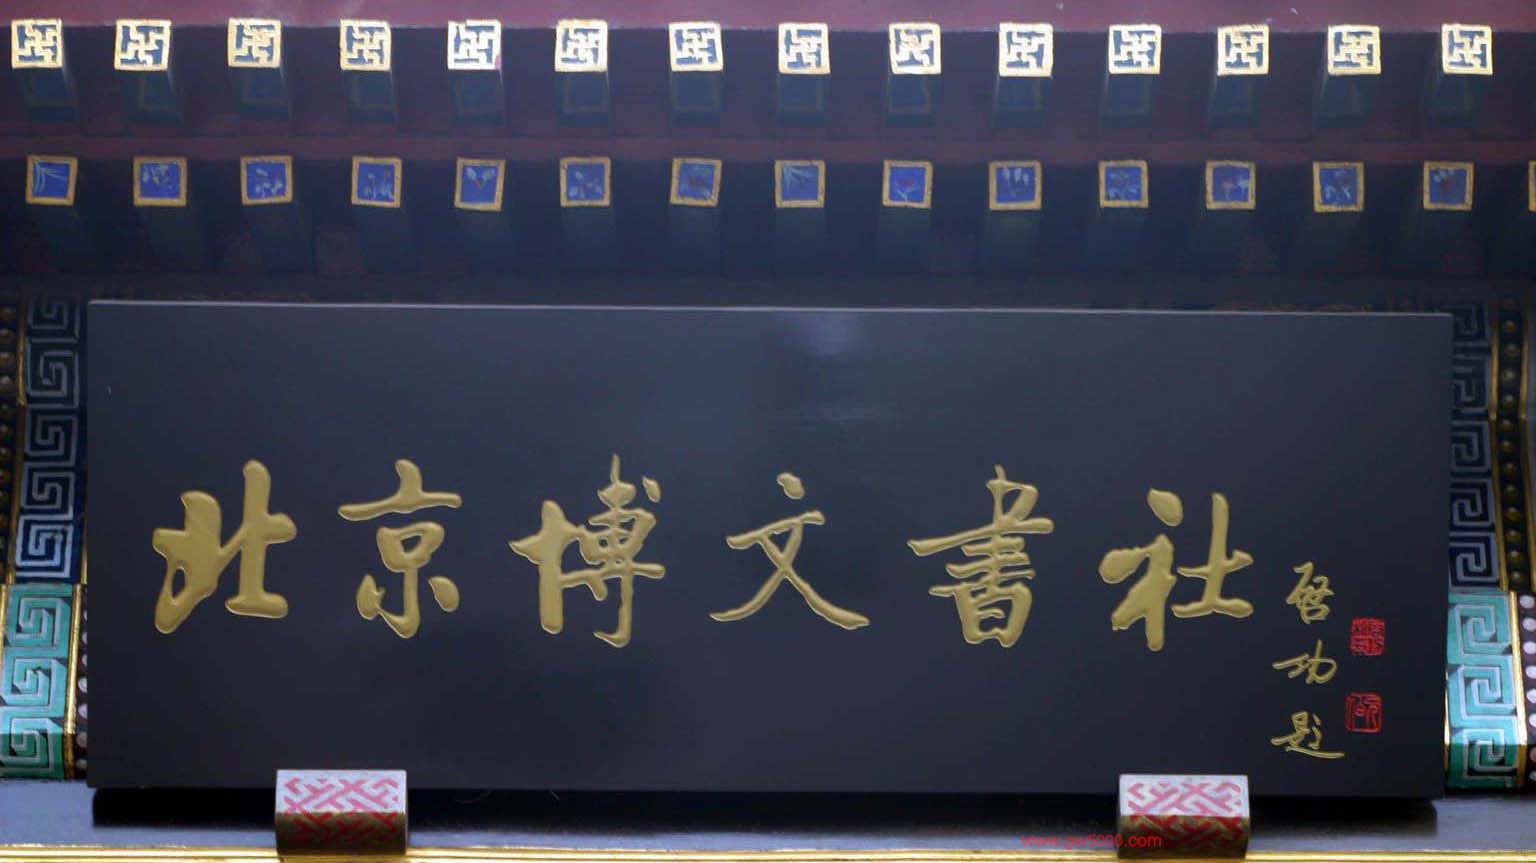 北京博文書社
啓功題
www.gw5000.com